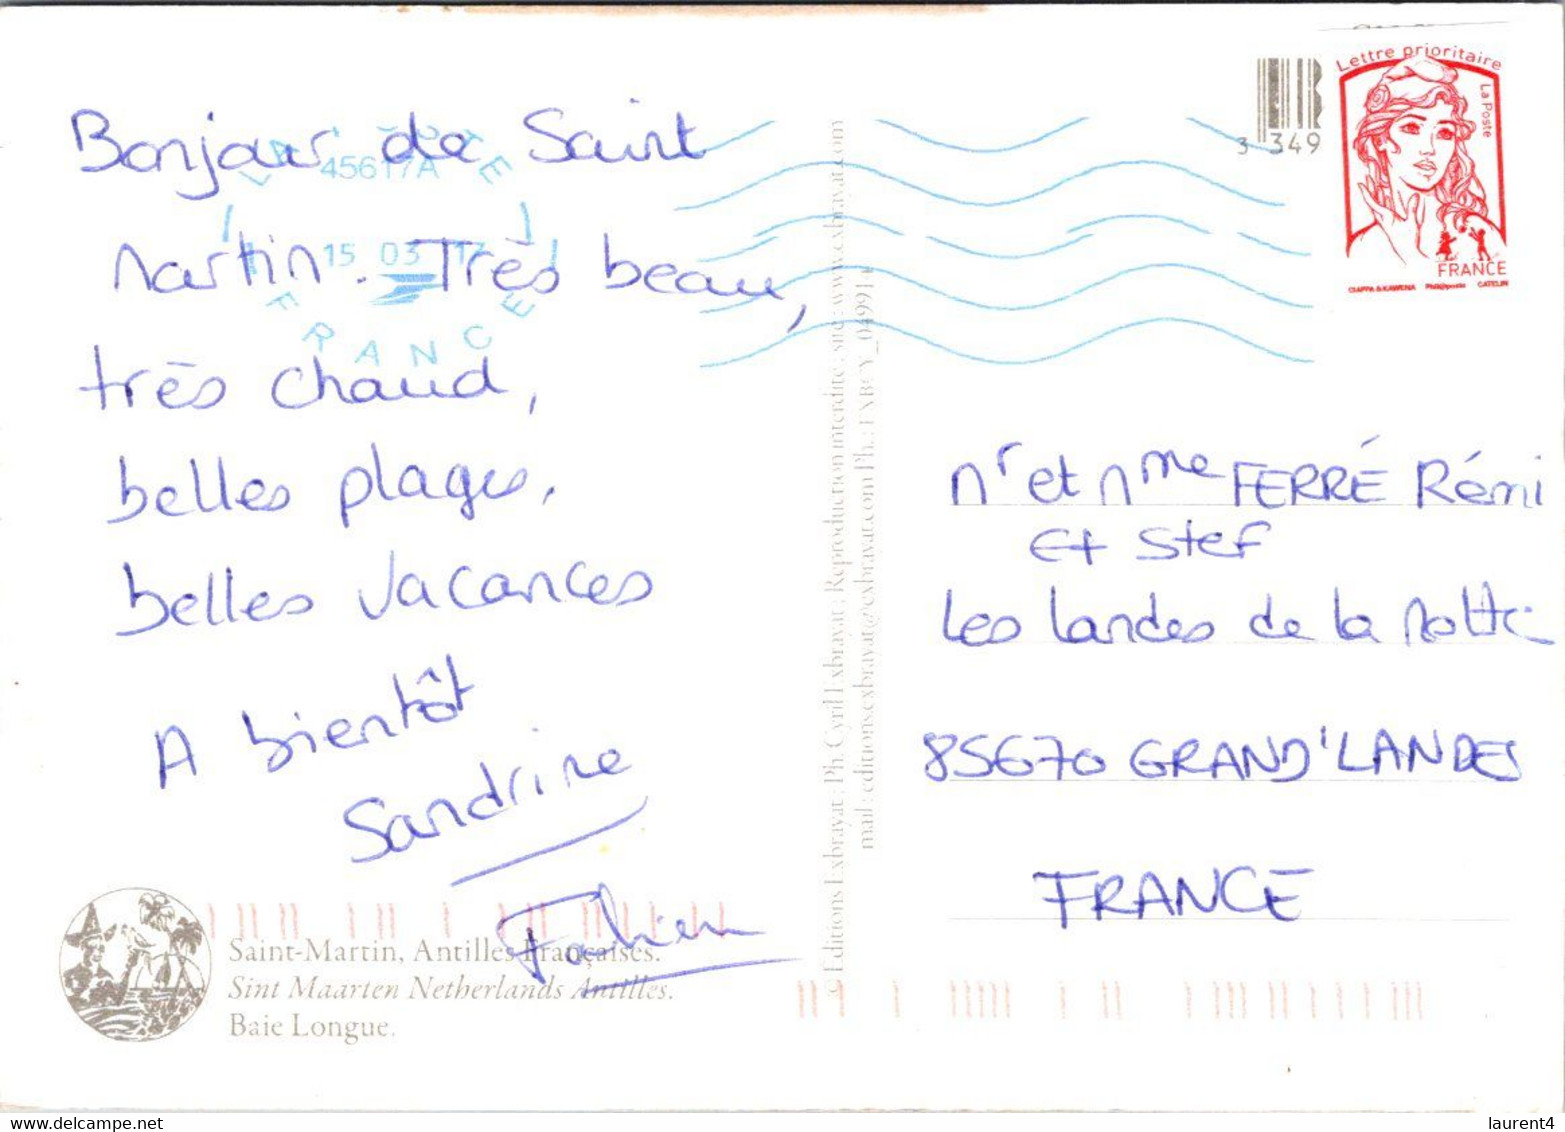 Bonjour de Saint
Martin. Très beau,
très chaud,
belles plages,
belles vacances
A bientôt
Sandrine
Fabien
Saint-Martin, Antilles Françaises.
Sint Maarten Netherlands Antilles.
Baie Longue.
LA POSTE
45617A
15 03 17
FRANCE
© Editions Exbrayat; Ph. Cyril Exbrayat; Reproduction interdite. site: www.exbrayat.com
mail: editions.exbrayat@exbrayat.com Ph.: EXBCY_04991
3 349
Lettre prioritaire
La Poste
FRANCE
CIAPPA & KAWENA Phil@poste CATELIN
Mr et Mme FERRÉ Rémi
Et Stef
Les Landes de la Motte
85670 GRAND'LANDES
FRANCE
laurent4